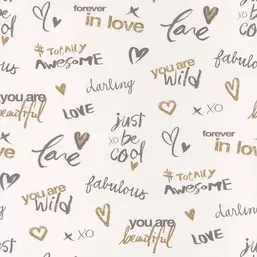 forever
in love
love
XO
#TOTALLY
AWESOME
you are
wild
fabulous
darling
you are
beautiful
LOVE
just
be
cool
XO
forever
in love
love
#TOTALLY
AWESOME
you are
wild
fabulous
darling
XO
you are
beautiful
LOVE